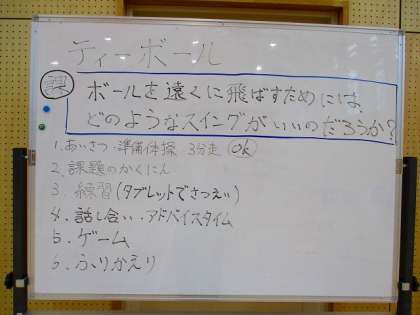 ティーボール
課 ボールを遠くに飛ばすためには、
どのようなスイングがいいのだろうか?
1.あいさつ・準備体操・3分走 OK
2.課題のかくにん
3.練習(タブレットでさつえい)
4.話し合い・アドバイスタイム
5.ゲーム
6.ふりかえり